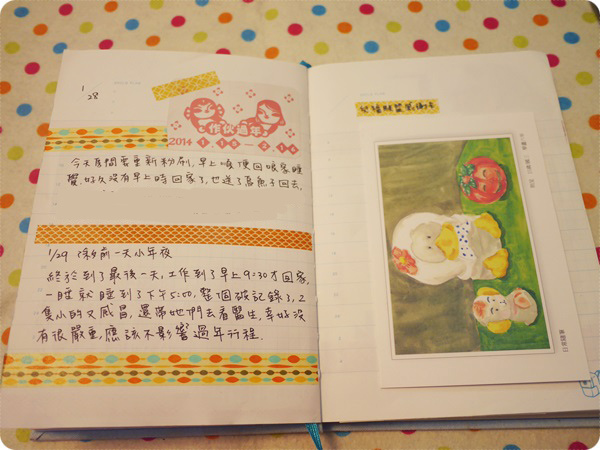 1/28
作伙過年
2014 1.18-2.16
今天房間需重新粉刷,早上順便回娘家睡
覺,好久沒有早上時回家了,也送了烏魚子回去。
1/29 除夕前一天小年夜
終於到了最後一天,工作到了早上9:30才回家,
一睡就睡到了下午5:00,整個破記錄了,2
隻小的又感冒,還帶她們去看醫生,幸好沒
有很嚴重,應該不影響過年行程。